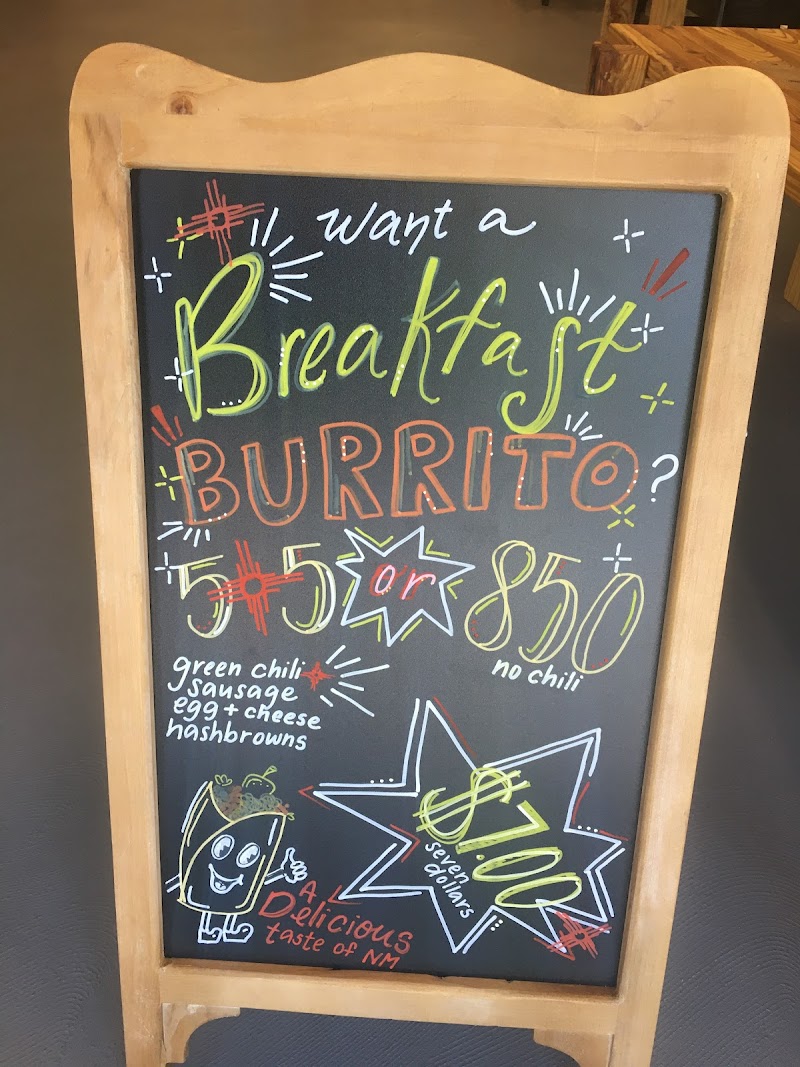 want a
Breakfast
BURRITO?
505 or 850
no chili
green chili
sausage
egg + cheese
hashbrowns
$7.00
seven
dollars
A
Delicious
taste of NM